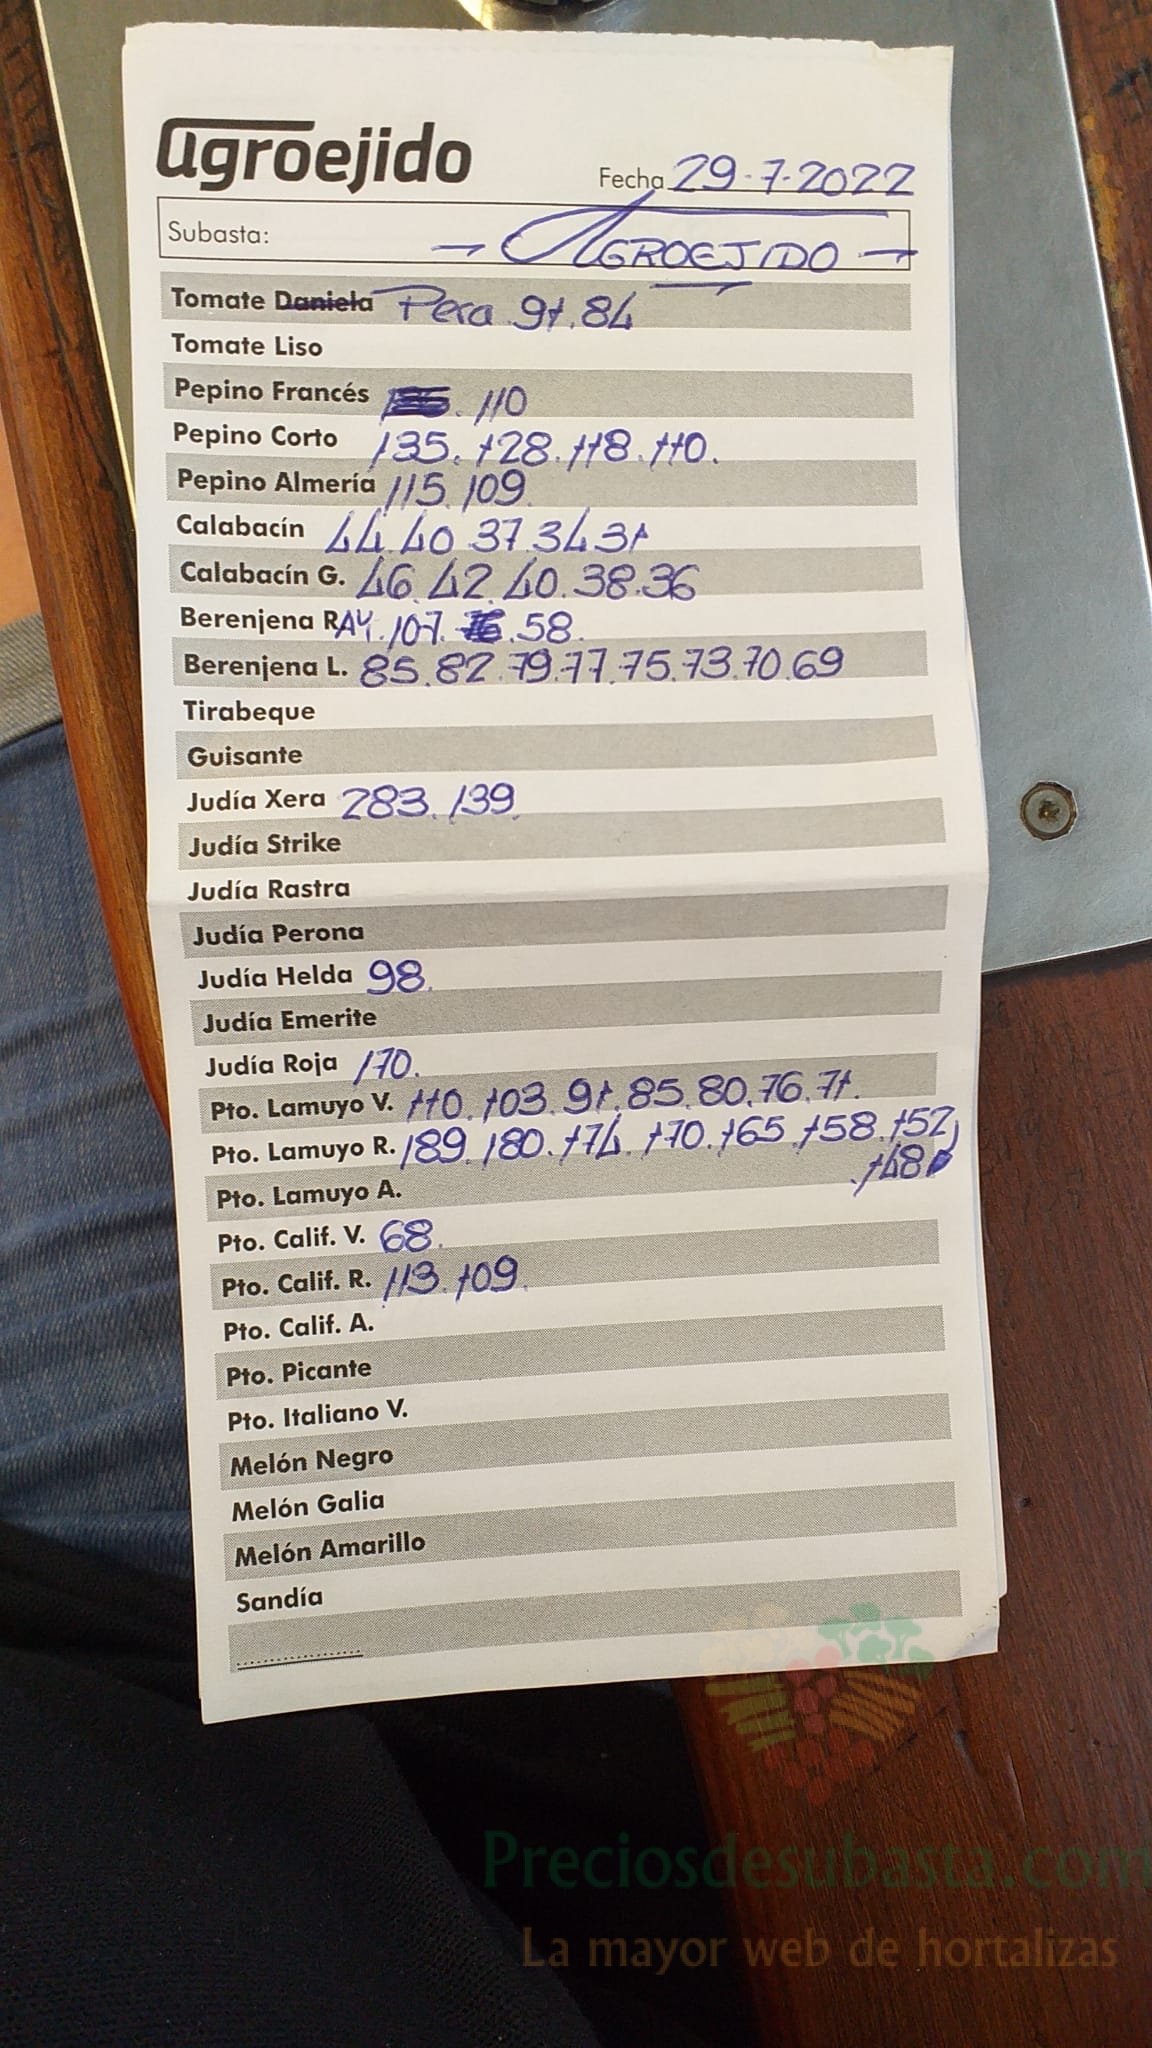 agroejido
Fecha 29-7-2022
Subasta: - AGROEJIDO -
Tomate Daniela Pera 91.84
Tomate Liso
Pepino Francés . 110
Pepino Corto 135. 128. 118. 110.
Pepino Almería 115. 109.
Calabacín 44. 40. 37. 34. 31
Calabacín G. 46. 42. 40. 38. 36
Berenjena RAY. 107. . 58.
Berenjena L. 85. 82. 79. 77. 75. 73. 70. 69
Tirabeque
Guisante
Judía Xera 283. 139.
Judía Strike
Judía Rastra
Judía Perona
Judía Helda 98.
Judía Emerite
Judía Roja 170.
Pto. Lamuyo V. 110. 103. 91. 85. 80. 76. 71.
Pto. Lamuyo R. 189. 180. 174. 170. 165. 158. 152,
. 148
Pto. Lamuyo A.
Pto. Calif. V. 68.
Pto. Calif. R. 113. 109.
Pto. Calif. A.
Pto. Picante
Pto. Italiano V.
Melón Negro
Melón Galia
Melón Amarillo
Sandía
Preciosdesubasta.com
La mayor web de hortalizas